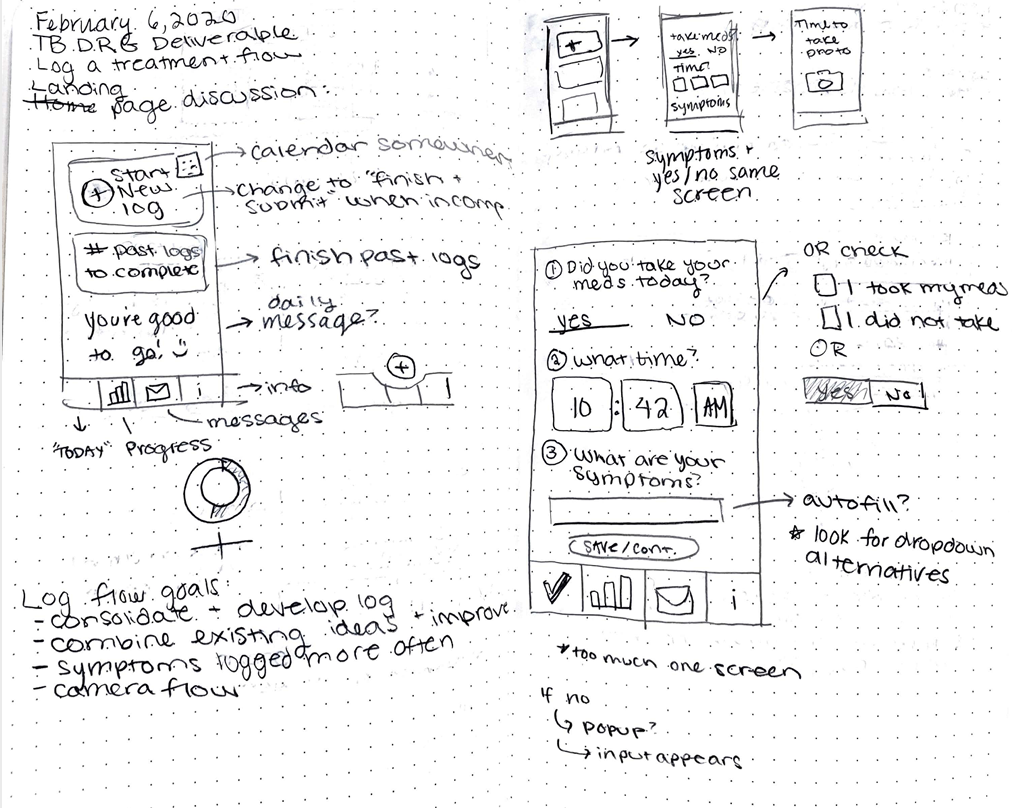 February 6, 2020
TB.D.R.G Deliverable
Log a treatment flow
Landing
Home page discussion:
Start
New
log
→ calendar somewhere
→ change to "finish +
submit" when incomp.
# past logs
to complete
→ finish past logs
you're good
to go!
→ daily
message?
i
→ info
messages
"TODAY"
Progress
Log flow goals:
- consolidate + develop log
- combine existing ideas + improve
- symptoms logged more often
- camera flow
take meds?
yes NO
Time?
symptoms
Time to
take
photo
symptoms +
yes/no same
screen
① Did you take your
meds today?
yes NO
② What time?
10 : 42 AM
③ What are your
symptoms?
SAVE/CONT.
i
OR check
I took my meds
I did not take
OR
Yes No
→ autofill?
* look for dropdown
alternatives
* too much one screen
If no
↳ popup?
↳ input appears